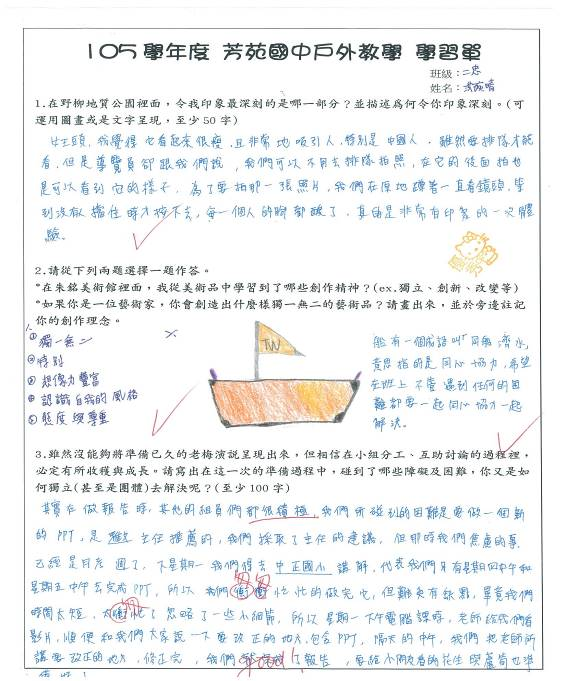 105 學年度 芳苑國中戶外教學 學習單
班級：二忠
姓名：
1.在野柳地質公園裡面，令我印象最深刻的是哪一部分？並描述為何令你印象深刻。(可
運用圖畫或是文字呈現，至少 50 字)
女王頭，我覺得它看起來很瘦，且非常地吸引人，特別是中國人，雖然每排隊才能
看，但是導覽員卻跟我們說，我們可以不用去排隊拍照，在它的後面拍也
是可以看到它的樣子，為了要拍那一張照片，我們在原地蹲著一直看鏡頭，等
到沒人擋住時才按下去，每一個人的腳都酸了，真的是非常有印象的一次體
驗。
2.請從下列兩題選擇一題作答。
*在朱銘美術館裡面，我從美術品中學習到了哪些創作精神？(ex.獨立、創新、改變等)
*如果你是一位藝術家，你會創造出什麼樣獨一無二的藝術品？請畫出來，並於旁邊註記
你的創作理念。
①獨一無二
②特別
③想像力豐富
④認識自我的風格
⑤態度與尊重
TW
船有一個成語叫同舟濟水，
意思指的是同心協力，希望
在班上不管遇到任何的困
難都要一起同心協力一起
解決。
3.雖然沒能夠將準備已久的老梅演說呈現出來，但相信在小組分工、互助討論的過程裡，
必定有所收穫與成長。請寫出在這一次的準備過程中，碰到了哪些障礙及困難，你又是如
何獨立(甚至是團體)去解決呢？(至少 100 字)
其實在做報告時，其他的組員們都很積極，我們所碰到的困難是要做一個新
的 PPT，是 主任推薦的，我們採取了主任的建議，但那時我們焦慮的事
已經是月底週了，下星期一我們得去中正國小講解，代表我們只有星期四中午和
星期五中午去完成PPT，所以我們匆匆忙忙的做完它，但難免有缺點，畢竟我們
時間太短，太 忙了忽略了一些小細節，所以星期一下午電腦課時，老師給我們看
影片，順便和我們大家說一下要改正的地方，包含PPT，隔天的中午，我們把老師所
講要改正的地方，修正完，我們 了報告，要給小朋友看的花生與蘆筍也準